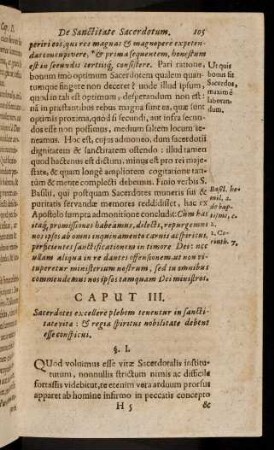 De Sanctitate Sacerdotum. 105
periri eos, qui res magnas & magnopere expeten-
das concupivere, & prima sequentem, honestum
est in secundis tertiisq́; consistere. Pari ratione,
bonum imò optimum Sacerdotem quâlem quan-
tumque singere non deceret? unde illud ipsum,
quòd in tali est optimum, desperandum non est:
nam in præstantibus rebus magna sunt ea, quæ sunt
optimis proxima, quòd si secundi, aut infra secun-
dos esse non possumus, medium saltem locum te-
neamus. Hoc est, cujus admonui, dum sacerdotij
dignitatem & sanctitatem ostendi: illud tamen
quod hactenus est dictum, minus est pro rei majes-
tate, & quàm longè ampliorem cogitatione tan-
dem & mente complecti debemus. Finio verbis S.
Basilij, qui postquam Sacerdotes muneris sui &
puritatis servandæ memores reddidisset, hac ex
Apostolo sumpta admonitione concludit: Cùm has
itaq́, promissiones habeamus, dilecti, repurgemus
nos ipsos ab omni inquinamento carnis ac spiritus,
perficientes sanctificationem in timore Dei: nec
ullam aliqua in re dantes offensionem, ut non vi-
tuperetur ministerium nostrum, sed in omnibus
commendemus nos ipsos tamquam Dei ministros.
Ut quis
bonus sit
Sacerdos,
maximè
laboran-
dum.
Basil. ho-
mil. 2.
de bap-
tismo, c.
2.
2. Co-
rinth. 7.
CAPUT III.
Sacerdotes excellere plebem tenentur in sancti-
tate vitæ: & regia spiritus nobilitate debent
esse conspicui.
§. I.
Quod volumus esse vitæ Sacerdotalis institu-
tutum, nonnullis strictum nimis ac difficile
fortassis videbitur, re etenim vera arduum prorsus
apparet ab homine infirmo in peccatis concepto
H 5 &